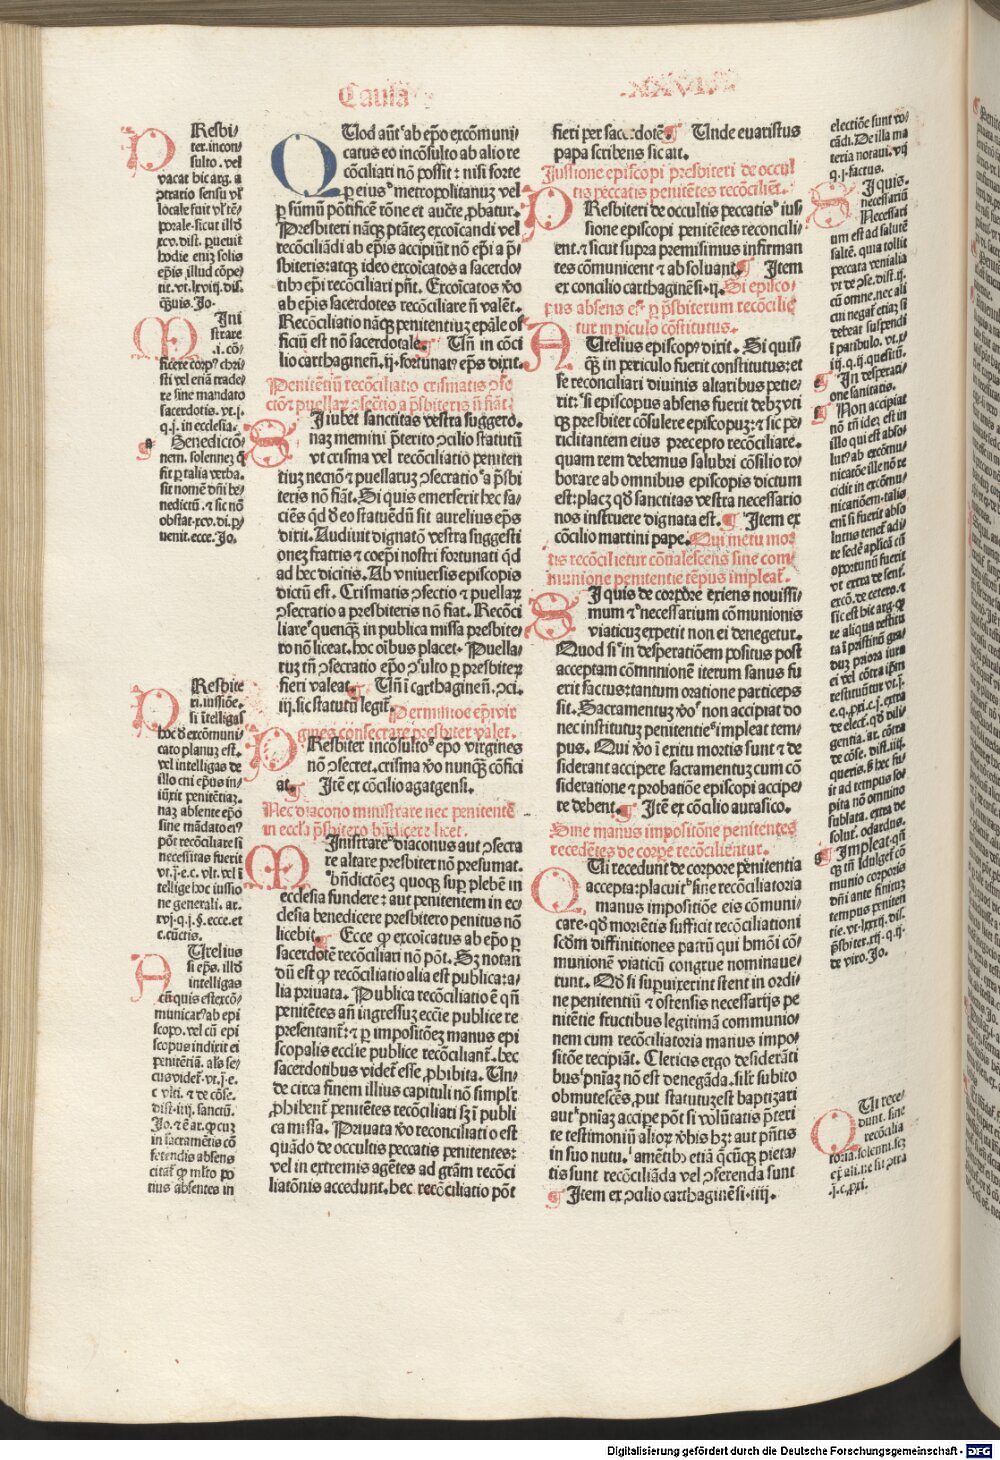 Causa
XXVI.
Resbi/
ter.incon/
sulto.vel
vacat hic arg. a
ↄtratio sensu vl'
locale fuit vl' tē/
porale.sicut illd
xcv.dist. puenit
hodie eniz solis
ep̄is.illud cōpe/
tit.vt.lxviij.dis.
q̄uis.Jo.
Ini
strare
.i.cō/
ficere corp⁹ chri/
sti vel etiā trade/
re sine mandato
sacerdotis.vt.j.
q.j.in ecclesia.
a Benedictō/
nem.solennez q̄
fit p talia verba.
sit nomē dn̄i be/
nedictū.⁊ sic nō
obstat.xcv.di.p/
uenit.ecce.Jo.
Resbite
ri.iussiōe.
si ītelligas
hoc ð excōmuni/
cato planuz est.
vel intelligas de
illo cui ep̄us in/
iūxit penitētiaz.
naz absente ep̄o
sine mādato ei⁹
pōt recōciliare si
necessitas fuerit
vt.j.e.c. vlt. vel ī
tellige hoc iussio
ne generali. ar.
xvj.q.j.§.ecce.et
c.cūctis.
Urelius
si ep̄s. illd
intelligas
cū quis est excō/
municat⁹ ab epi
scopo.vel cū epi
scopus indixit ei
penitētiā. als se/
cus videt.vt.j.e.
c vlti. ⁊ de cōse.
dist.iiij. sanctū.
Jo.⁊ ē ar.q cuz
in sacramētis cō
ferendis absens
citat q̄ mlto po
tius absentes in
Uod aūt ab ep̄o excōmuni/
catus eo incōsulto ab alio re
cōciliari nō possit : nisi forte
p eius metropolitanuz vel
p sūmū pōtificē rōne et aucte pbatur.
Presbiteri nāqz ptātez excoicandi vel
recōciliādi ab ep̄is accipiūt nō ep̄i a p̄/
sbiteris:atqz ideo excoicatos a sacerdo/
tibꝫ ep̄i recōciliari pn̄t. Excoicatos v̄o
ab ep̄is sacerdotes recōciliare n̄ valēt.
Recōciliatio nāqz penitentiuz ep̄ale of
ficiū est nō sacerdotale. Un̄ in cōci
lio carthaginen̄.ij.fortunat⁹ ep̄s dixit.
Penitētiū recōciliatio crismatis ↄfe
ctiō⁊ puellaꝝ ↄsectio a p̄sbiteris n̄ fiāt
I iubet sanctitas vestra suggero.
naz memini p̄terito ↄcilio statutū
vt crisma vel recōciliatio peniten
tiuz necnō ⁊ puellaruz ↄsecratio a p̄sbi
teris nō fiāt. Si quis emerserit hec fa/
ciēs qd ð eo statuēdū sit aurelius ep̄s
dixit. Audiuit dignatō vestra suggesti
onez fratris ⁊ coep̄i nostri fortunati qd
ad hec dicitis. Ab vniuersis episcopis
dictū est. Crismatis ↄfectio ⁊ puellaꝝ
ↄsecratio a presbiteris nō fiat. Recōci
liare quenqz in publica missa presbite/
ro nō liceat. hoc oibus placet. Puella/
ruz tn̄ ↄsecratio ep̄o ↄsulto p presbiterꝝ
fieri valeat. Un̄ ī carthaginen̄.ↄci.
iij.sic statutū legit.
Per minoe ep̄i vir
gines consecrare presbiter valet.
Resbiter incōsulto ep̄o virgines
nō ↄsecret.crisma v̄o nunqz cōfici
at. Itē ex cōcilio agatgensi.
Nec diacono ministrare nec penitentē
in eccl̄a p̄sbitero bn̄dicere licet.
Inistrare diaconus aut ↄsecra
re altare presbiter nō presumat.
bn̄dictōez quoqz sup plebē in
ecclesia fundere : aut penitentem in ec/
clesia benedicere presbitero penitus nō
licebit. Ecce q excoicatus ab ep̄o p
sacerdotē recōciliari nō pōt. Sz notan
dū est q recōciliatio alia est publica:a/
lia priuata. Publica recōciliatio ē qn̄
penitētes an̄ ingressuz eccl̄ie publice re
presentant:⁊ p impositōez manus epi
scopalis eccl̄ie publice recōciliant.hec
sacerdotibus videt esse phibita. Un/
de circa finem illius capituli nō simplr
phibent penitētes recōciliari sꝫ ī publi
ca missa. Priuata v̄o reconciliatio est
quādo de occultis peccatis penitentes:
vel in extremis agētes ad grām recōci
liatōnis accedunt.hec recōciliatio pōt
fieri per sacerdotē. Unde euaristus
papa scribens sic ait.
Iussione episcopi presbiteri de occul
tis peccatis penitētes recōciliēt.
Resbiteri de occultis peccatis iuf
sione episcopi penitētes reconcili/
ent.⁊ sicut supra premisimus infirman
tes cōmunicent ⁊ absoluant. Item
ex concilio carthaginēsi.ij. Si episco/
pus absens est p p̄sbiterum recōcilie
tur in piculo cōstitutus.
Urelius episcop⁹ dixit. Si quis/
q̄ in periculo fuerit constitutus:et
se reconciliari diuinis altaribus petie/
rit: si episcopus absens fuerit debꝫ vti
qz presbiter cōsulere episcopuz:⁊ sic pe/
riclitantem eius precepto recōciliare.
quam rem debemus salubri cōsilio ro/
borare ab omnibus episcopis dictum
est:placꝫ qd sanctitas vestra necessario
nos instruere dignata est. Item ex
cōcilio martini pape. Qui metu mor
tis recōcilietur cōualescens sine com/
munione penitentie tēpus impleat.
I quis de corpore exiens nouissi/
mum ⁊ necessarium cōmunionis
viaticuz expetit non ei denegetur.
Quod si in desperatiōem positus post
acceptam cōmnnionē iterum sanus fu
erit factus:tantum oratione particeps
sit. Sacramentuz v̄o non accipiat do
nec institutuz penitentie impleat tem/
pus. Qui v̄o ī exitu mortis sunt ⁊ de
siderant accipere sacramentuz cum cō
sideratione ⁊ probatiōe episcopi accipe/
re debent. Itē ex cōcilio aurasico.
Sine manus impositōne penitentes
recedētes de corpe recōcilientur.
Ui recedunt de corpore penitentia
accepta:placuit sine recōciliatoria
manus impositiōe eis cōmuni/
care.qd moriētis sufficit recōciliationi
scdm diffinitiones patrū qui hmōi cō/
munionē viaticū congrue nominaue/
runt. Qd si supuixerint stent in ordi/
ne penitentiū ⁊ ostensis necessarijs pe
nitētie fructibus legitimā communio/
nem cum recōciliatoria manus impo/
sitōe recipiāt. Clericis ergo desiderāti
bus pn̄iaz nō est denegāda. silr subito
obmutescēs put statutuz est baptizari
aut pn̄iaz accipe pōt si volūtatis p̄teri
te testimoniū alioꝝ v̄bis hꝫ: aut pn̄tis
in suo nutu. amētibꝫ etiā q̄cūqz pieta/
tis sunt recōciliāda vel ↄferenda sunt
Item ex ↄcilio carthaginēsi.iiij.
electiōe sunt vo/
cādi. De illa ma
teria notaui. vij
q.j.factus.
I quis.
necessariū
Necessari
um est ad salutē
saltē. quia tollit
peccata venialia
vt de ↄse. dist.ij.
cū omne. nec ali
cui negat etiaz si
debeat suspendi
ī patibulo. vt.x
iij.q.ij.quesitū.
In desperati/
one sanitatis.
Non accipiat
nō tn̄ idez est in
illo qui est abso/
lut⁹ ab excōmu/
nicatōe ille nō re
cidit in excōmu/
nicatiōem. talis
eni si fuerit abso
lutus tenet adi/
re sedē aplicā cū
oportunū fuerit
vt extra de sent.
excō. de cetero.⁊
sic est hic arg. q
te aliqua restitu
ta ī pristinū gra/
duz priora iura
ei vel cōtra ipm
restituūtur vt.j.
e.q.pxi.c.j. extra
de elect. qd dili/
gentia. ar. cōtra
de cōse. dist.iiij.
queris. § hec fu/
it ad tempus so/
pita nō omnino
sublata. extra de
solut. odardus.
Impleat. qn̄
qz tn̄ īdulget cō
munio corporis
dn̄i ante finituz
tempus peniten
tie. vt.lxxxij. dis.
p̄sbiter.xij.q.ij.
de viro. Jo.
Ui rece/
dunt. sine
recōcilia
toria. solenni. sꝫ
ↄtra
.j.c.pxi.
Digitalisierung gefördert durch die Deutsche Forschungsgemeinschaft - DFG